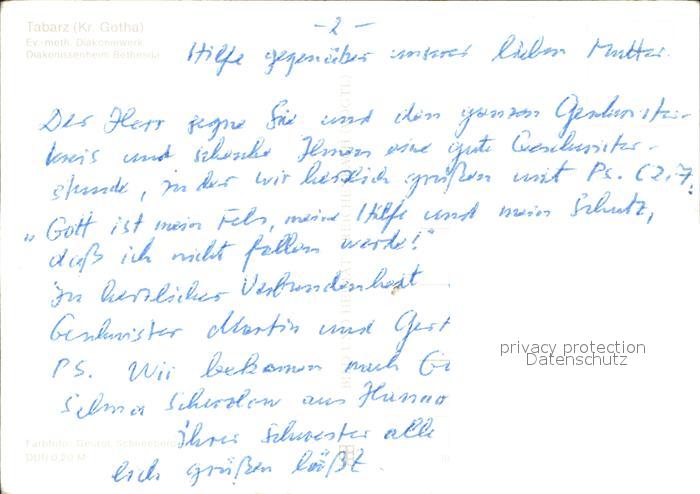 - 2 -
Tabarz (Kr. Gotha)
Ev.-meth. Diakoniewerk
Diakonissenheim Bethesda
Hilfe gegenüber unserer lieben Mutter.
Der Herr segne Sie und den ganzen Geschwister-
kreis und schenke Ihnen eine gute Geschwister-
stunde, in der wir herzlich grüßen mit Ps. 62,7:
"Gott ist mein Fels, meine Hilfe und mein Schutz,
daß ich nicht fallen werde!"
In herzlicher Verbundenheit
Geschwister Martin und Gert
PS. Wir bekamen nach
Selma aus Hanno
Ihrer Schwester alle
lich grüßen läßt.
Farbfoto: Georgi, Schneeberg
DDR 0,20 M
privacy protection
Datenschutz